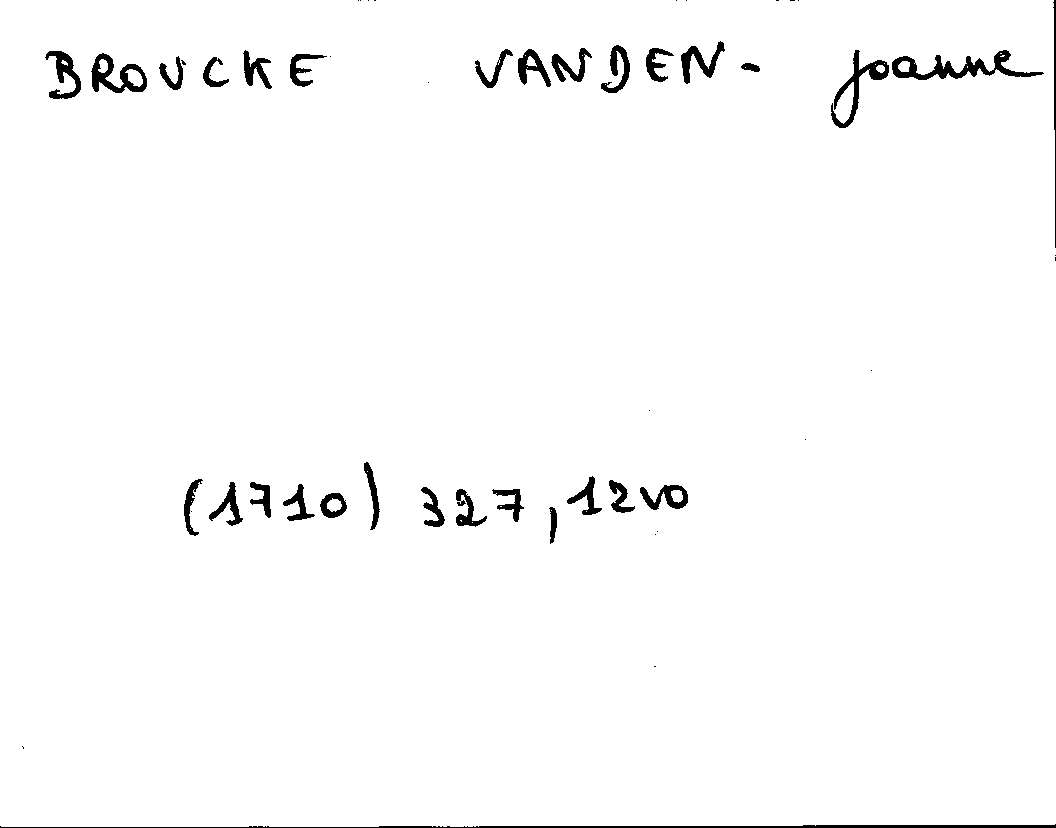 BROUCKE VANDEN- Joanne
(1710) 327, 12vo